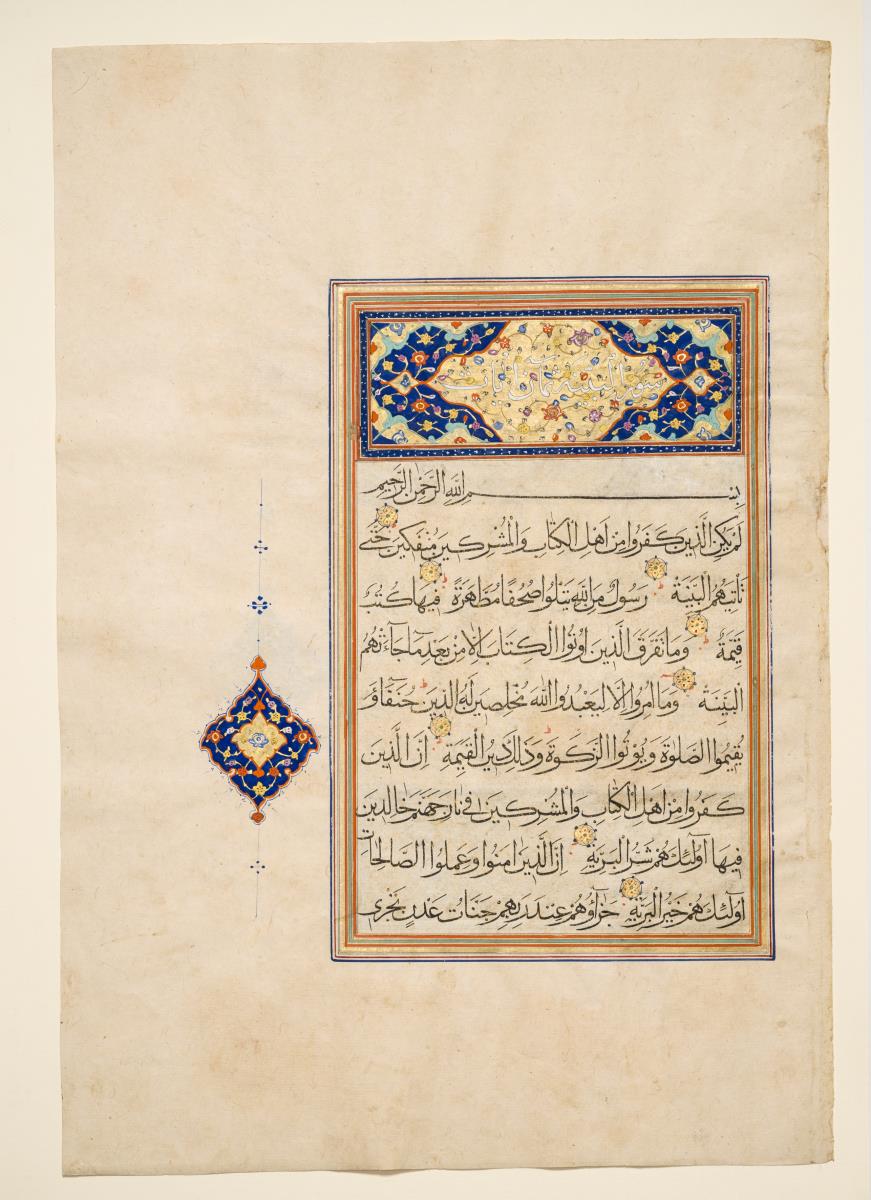 سورة البينة ثمان ايات
بسم الله الرحمن الرحيم
لَمْ يَكُنِ الَّذِينَ كَفَرُوا مِنْ اَهْلِ الْكِتَابِ وَالْمُشْرِكِينَ مُنْفَكِّينَ حَتّٰى
تَاْتِيَهُمُ الْبَيِّنَةُ رَسُولٌ مِنَ اللّٰهِ يَتْلُوا صُحُفًا مُطَهَّرَةً فِيهَا كُتُبٌ
قَيِّمَةٌ وَمَا تَفَرَّقَ الَّذِينَ اُوتُوا الْكِتَابَ اِلَّا مِنْ بَعْدِ مَا جَآءَتْهُمُ
الْبَيِّنَةُ وَمَا اُمِرُوا اِلَّا لِيَعْبُدُوا اللّٰهَ مُخْلِصِينَ لَهُ الدِّينَ حُنَفَآءَ وَ
يُقِيمُوا الصَّلٰوةَ وَيُؤْتُوا الزَّكٰوةَ وَذٰلِكَ دِينُ الْقَيِّمَةِ اِنَّ الَّذِينَ
كَفَرُوا مِنْ اَهْلِ الْكِتَابِ وَالْمُشْرِكِينَ فِى نَارِ جَهَنَّمَ خَالِدِينَ
فِيهَا اُولٰٓئِكَ هُمْ شَرُّ الْبَرِيَّةِ اِنَّ الَّذِينَ اٰمَنُوا وَعَمِلُوا الصَّالِحَاتِ
اُولٰٓئِكَ هُمْ خَيْرُ الْبَرِيَّةِ جَزَآؤُهُمْ عِنْدَ رَبِّهِمْ جَنَّاتُ عَدْنٍ تَجْرِى